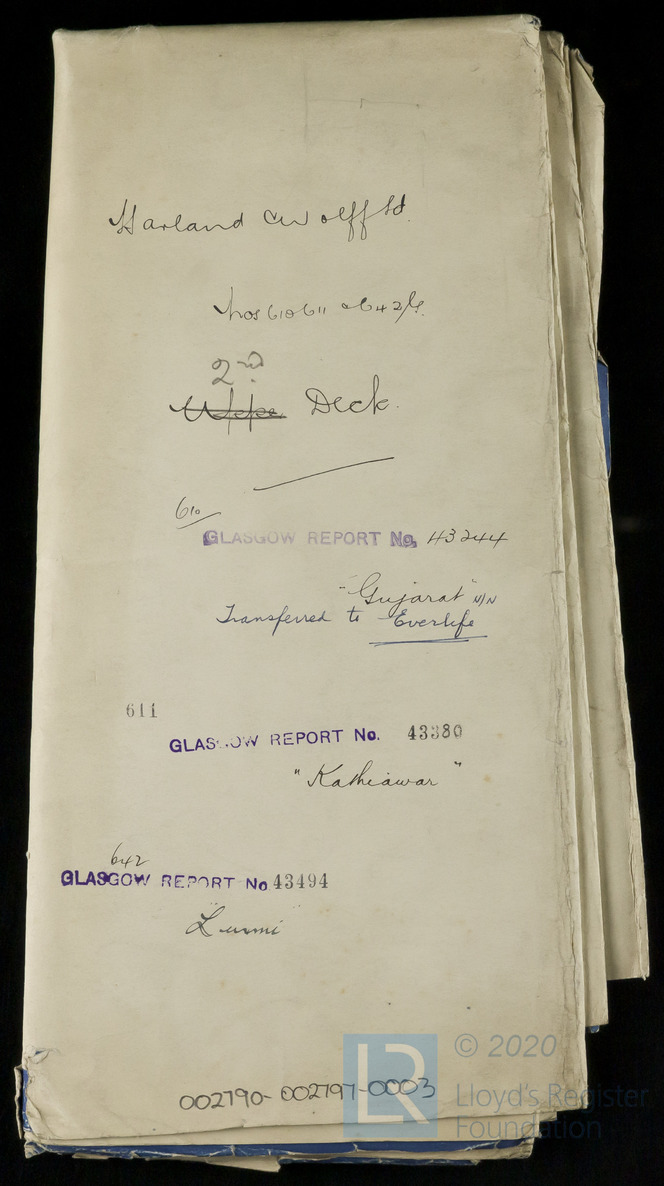 Harland & Wolff Ld.
Nos 610 611 & 642/G.
2nd
Uppe Deck.
610
GLASGOW REPORT No. 43244
"Gujarat" N/N
Transferred to Everlife
611
GLASGOW REPORT No. 43380
"Kathiawar"
642
GLASGOW REPORT No 43494
"Luxmi"
002790-002797-0003
LR
© 2020
Lloyd's Register
Foundation